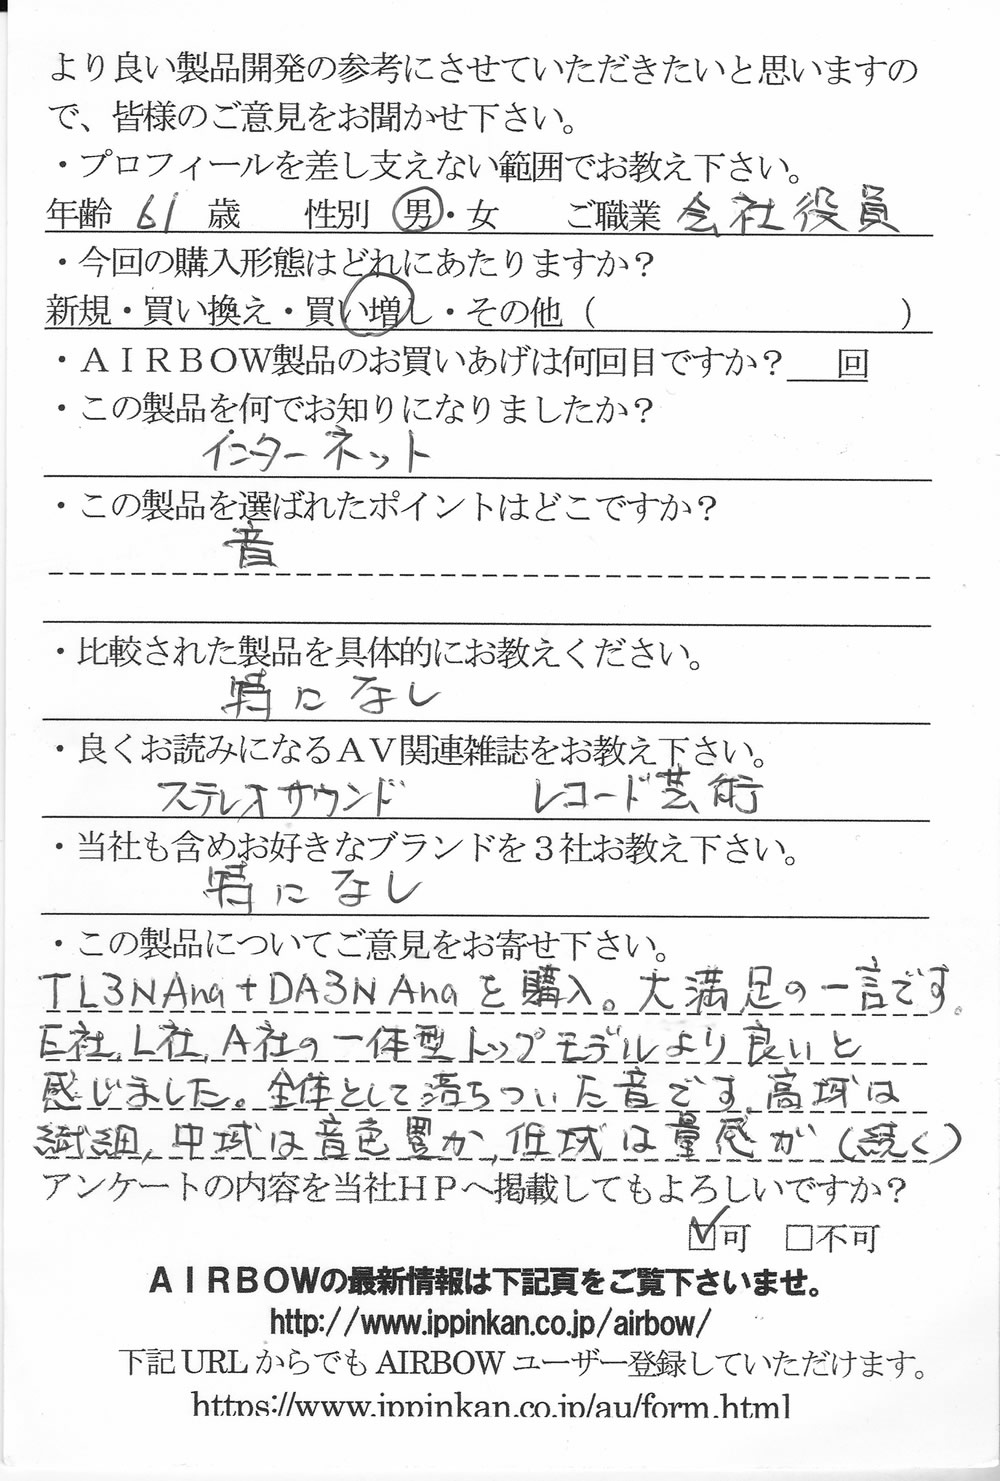 より良い製品開発の参考にさせていただきたいと思いますの
で、皆様のご意見をお聞かせ下さい。
・プロフィールを差し支えない範囲でお教え下さい。
年齢 61 歳 性別 男・女 ご職業 会社役員
・今回の購入形態はどれにあたりますか？
新規・買い換え・買い増し・その他（ ）
・ＡＩＲＢＯＷ製品のお買いあげは何回目ですか？ 回
・この製品を何でお知りになりましたか？
インターネット
・この製品を選ばれたポイントはどこですか？
音
・比較された製品を具体的にお教えください。
特になし
・良くお読みになるＡＶ関連雑誌をお教え下さい。
ステレオサウンド レコード芸術
・当社も含めお好きなブランドを３社お教え下さい。
特になし
・この製品についてご意見をお寄せ下さい。
TL3N Ana + DA3N Ana を購入。大満足の一言です。
E社, L社, A社の一体型トップモデルより良いと
感じました。全体として落ちついた音です。高域は
繊細, 中域は音色豊か, 低域は量感が (続く)
アンケートの内容を当社ＨＰへ掲載してもよろしいですか？
☑可 □不可
ＡＩＲＢＯＷの最新情報は下記頁をご覧下さいませ。
http://www.ippinkan.co.jp/airbow/
下記 URL からでも AIRBOW ユーザー登録していただけます。
https://www.ippinkan.co.jp/au/form.html